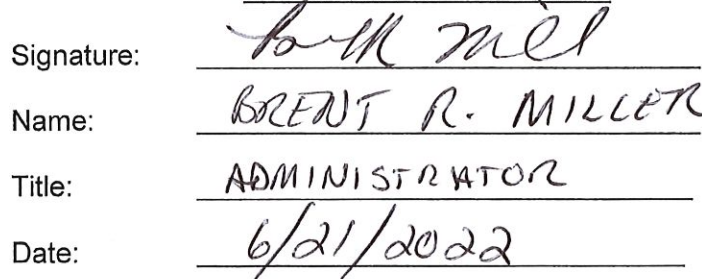 Signature:
Name: BRENT R. MILLER
Title: ADMINISTRATOR
Date: 6/21/2022